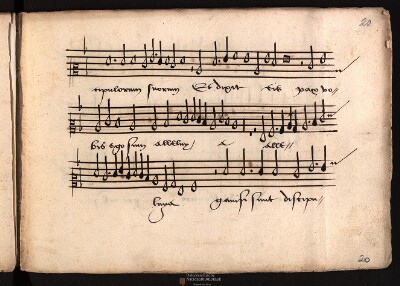 20
cipulorum suorum Et dixit eis pax vo-
bis ego sum alleluy- a alle-
luya gavisi sunt discipu-
20